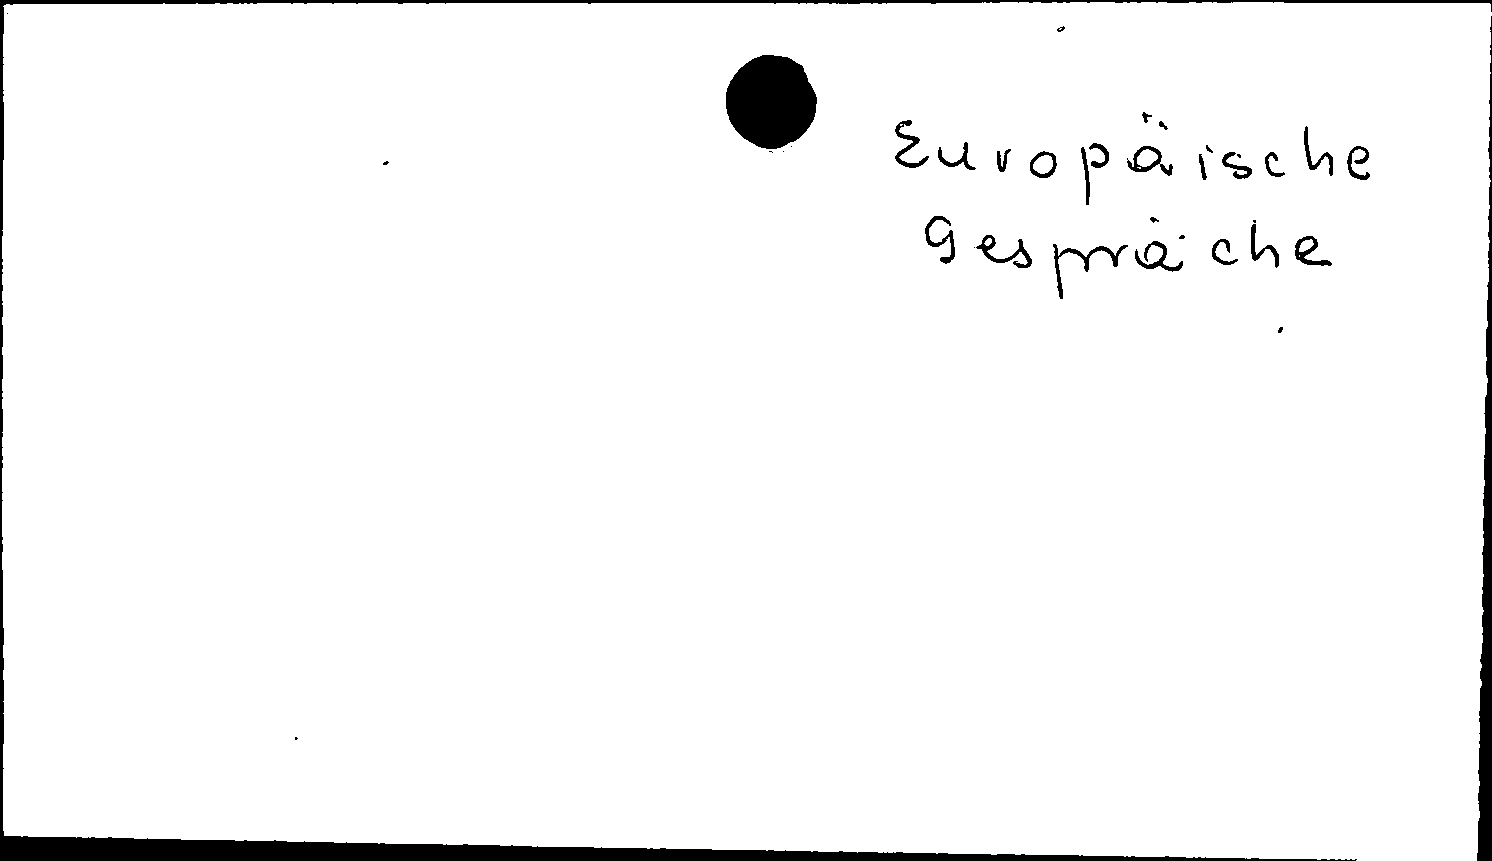 Europäische
Gespräche